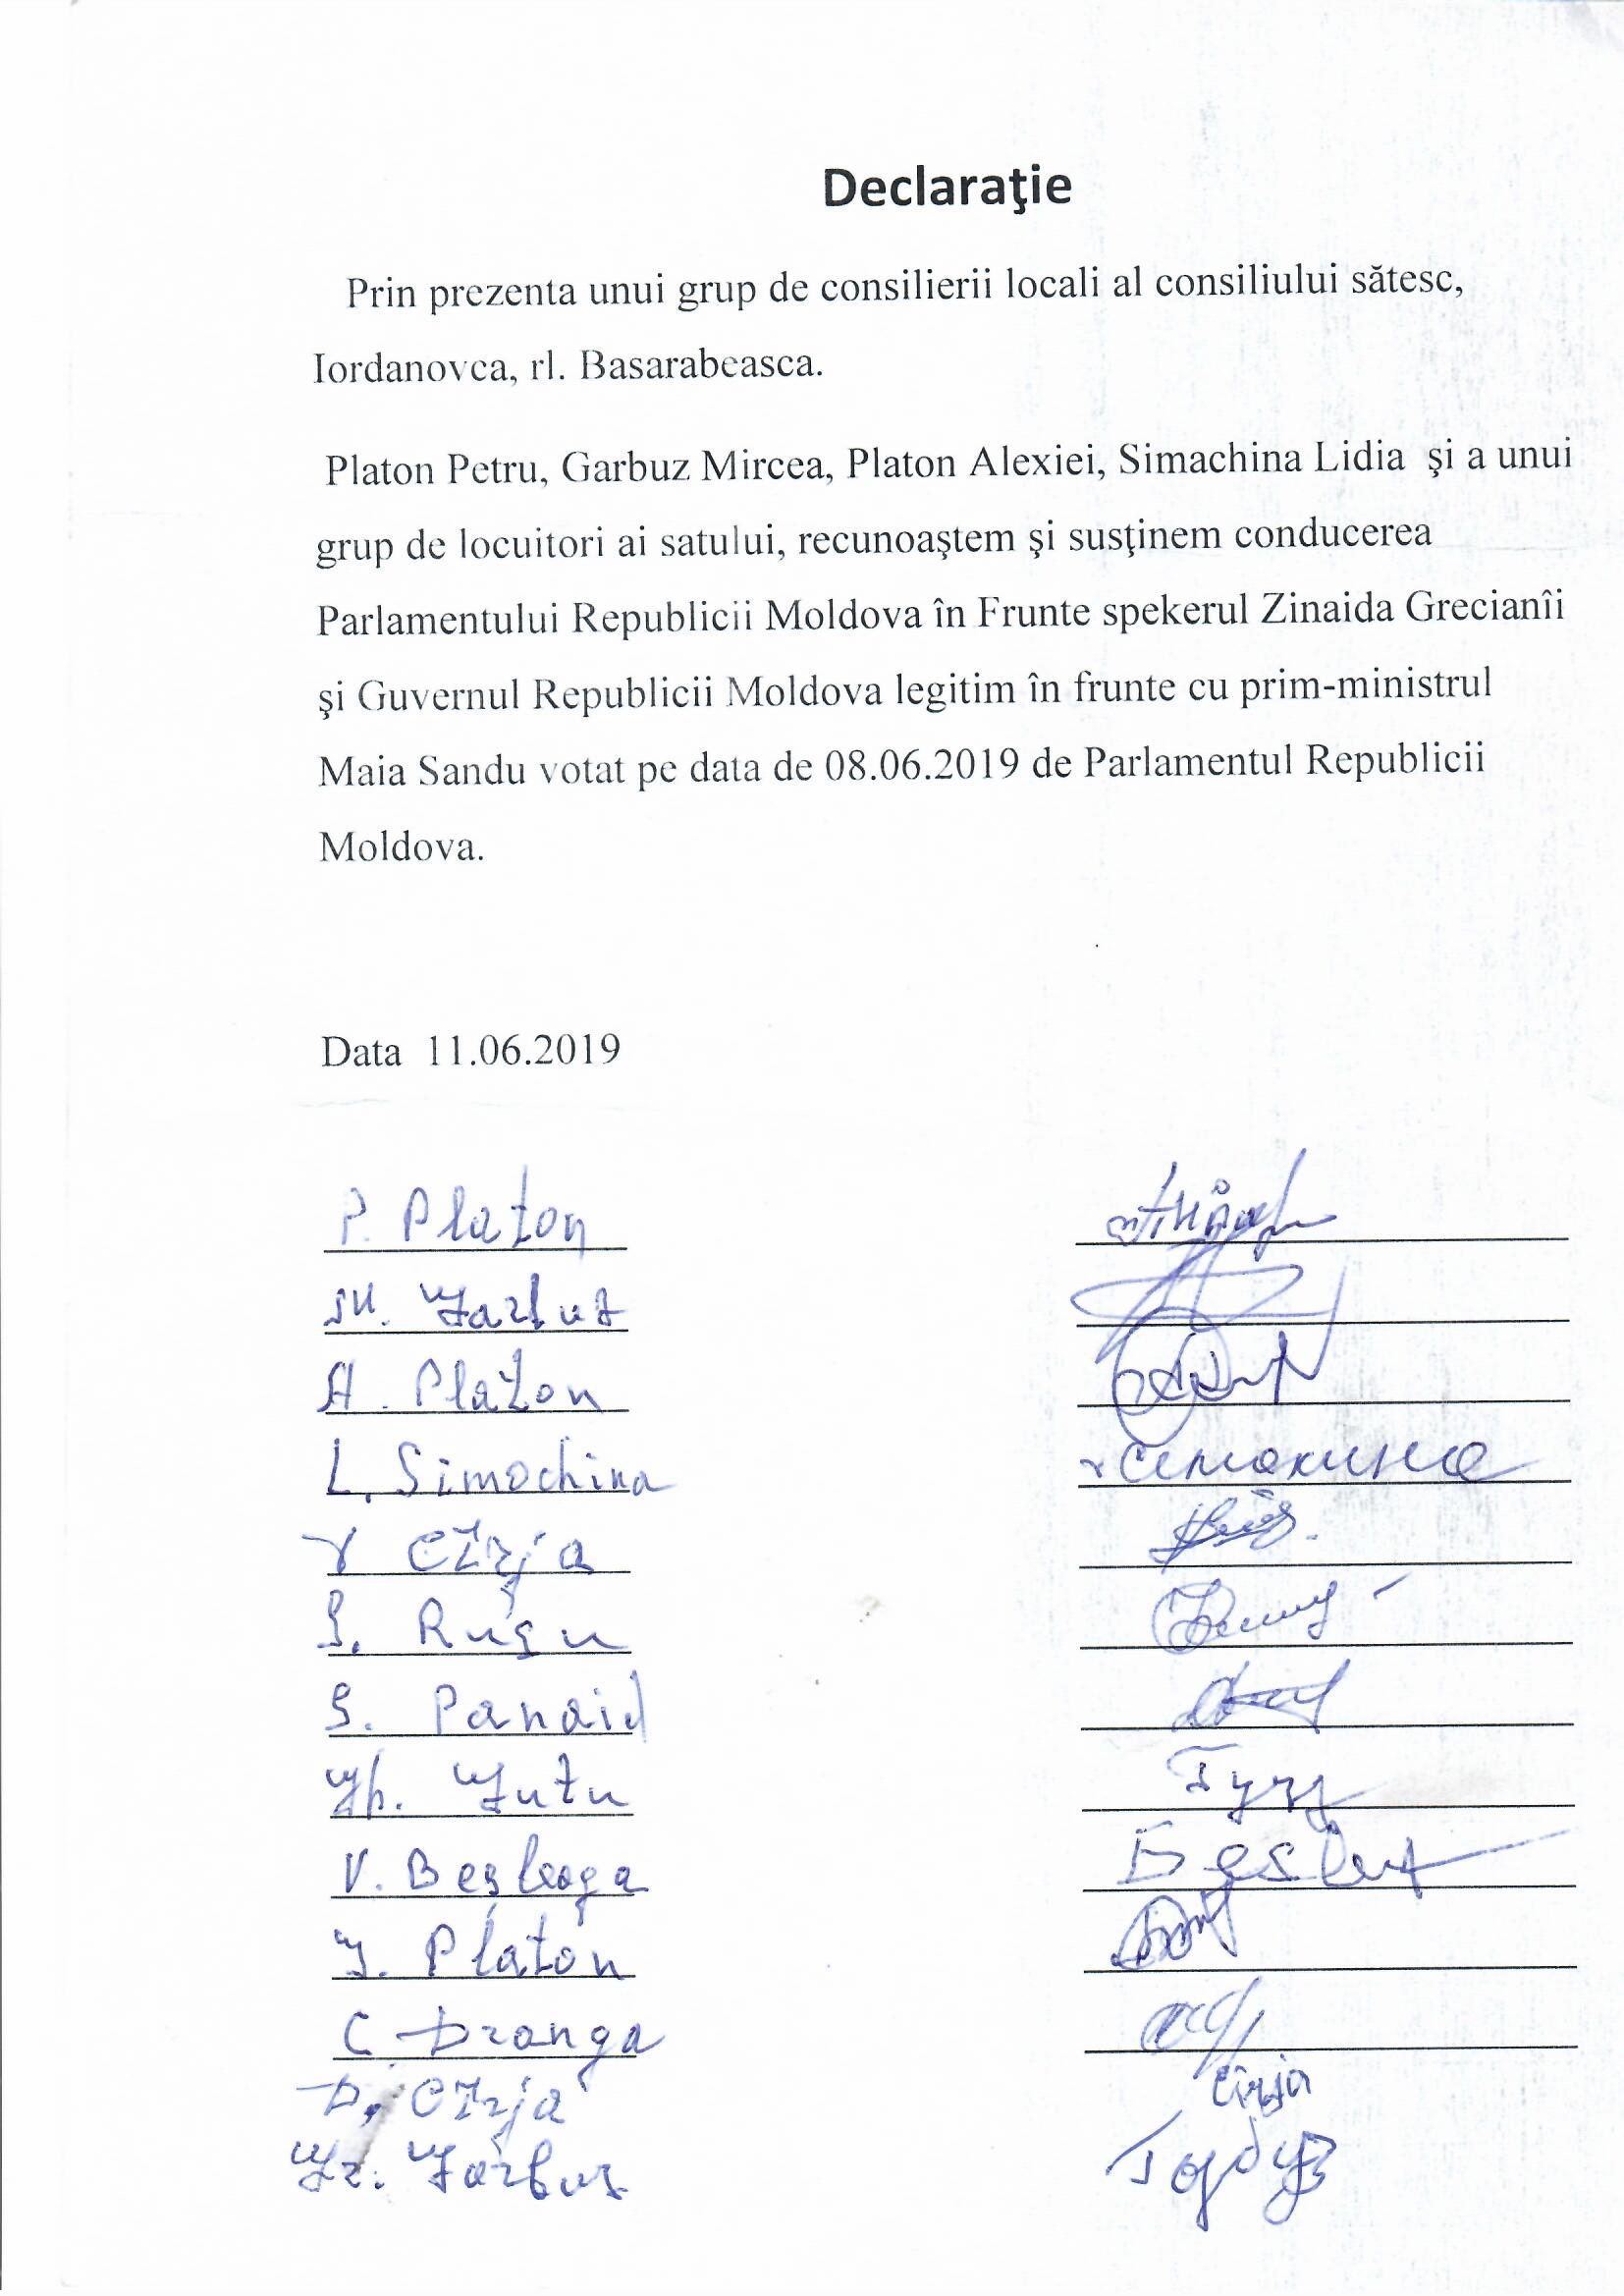 Declaraţie
Prin prezenta unui grup de consilierii locali al consiliului sătesc,
Iordanovca, rl. Basarabeasca.
Platon Petru, Garbuz Mircea, Platon Alexiei, Simachina Lidia şi a unui
grup de locuitori ai satului, recunoaştem şi susţinem conducerea
Parlamentului Republicii Moldova în Frunte spekerul Zinaida Grecianîi
şi Guvernul Republicii Moldova legitim în frunte cu prim-ministrul
Maia Sandu votat pe data de 08.06.2019 de Parlamentul Republicii
Moldova.
Data 11.06.2019
P. Platon
M. Garbuz
A. Platon
L. Simochina Симокина
V Cîrja
Rusu
S. Panaid
Gh. Guțu
V. Beșleaga
Platon
C. Dranga
D. Cîrja Cîrja
Gr. Garbuz